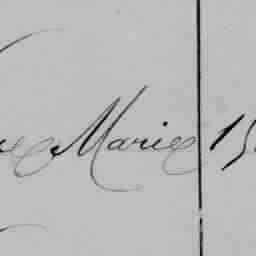 Marie 15